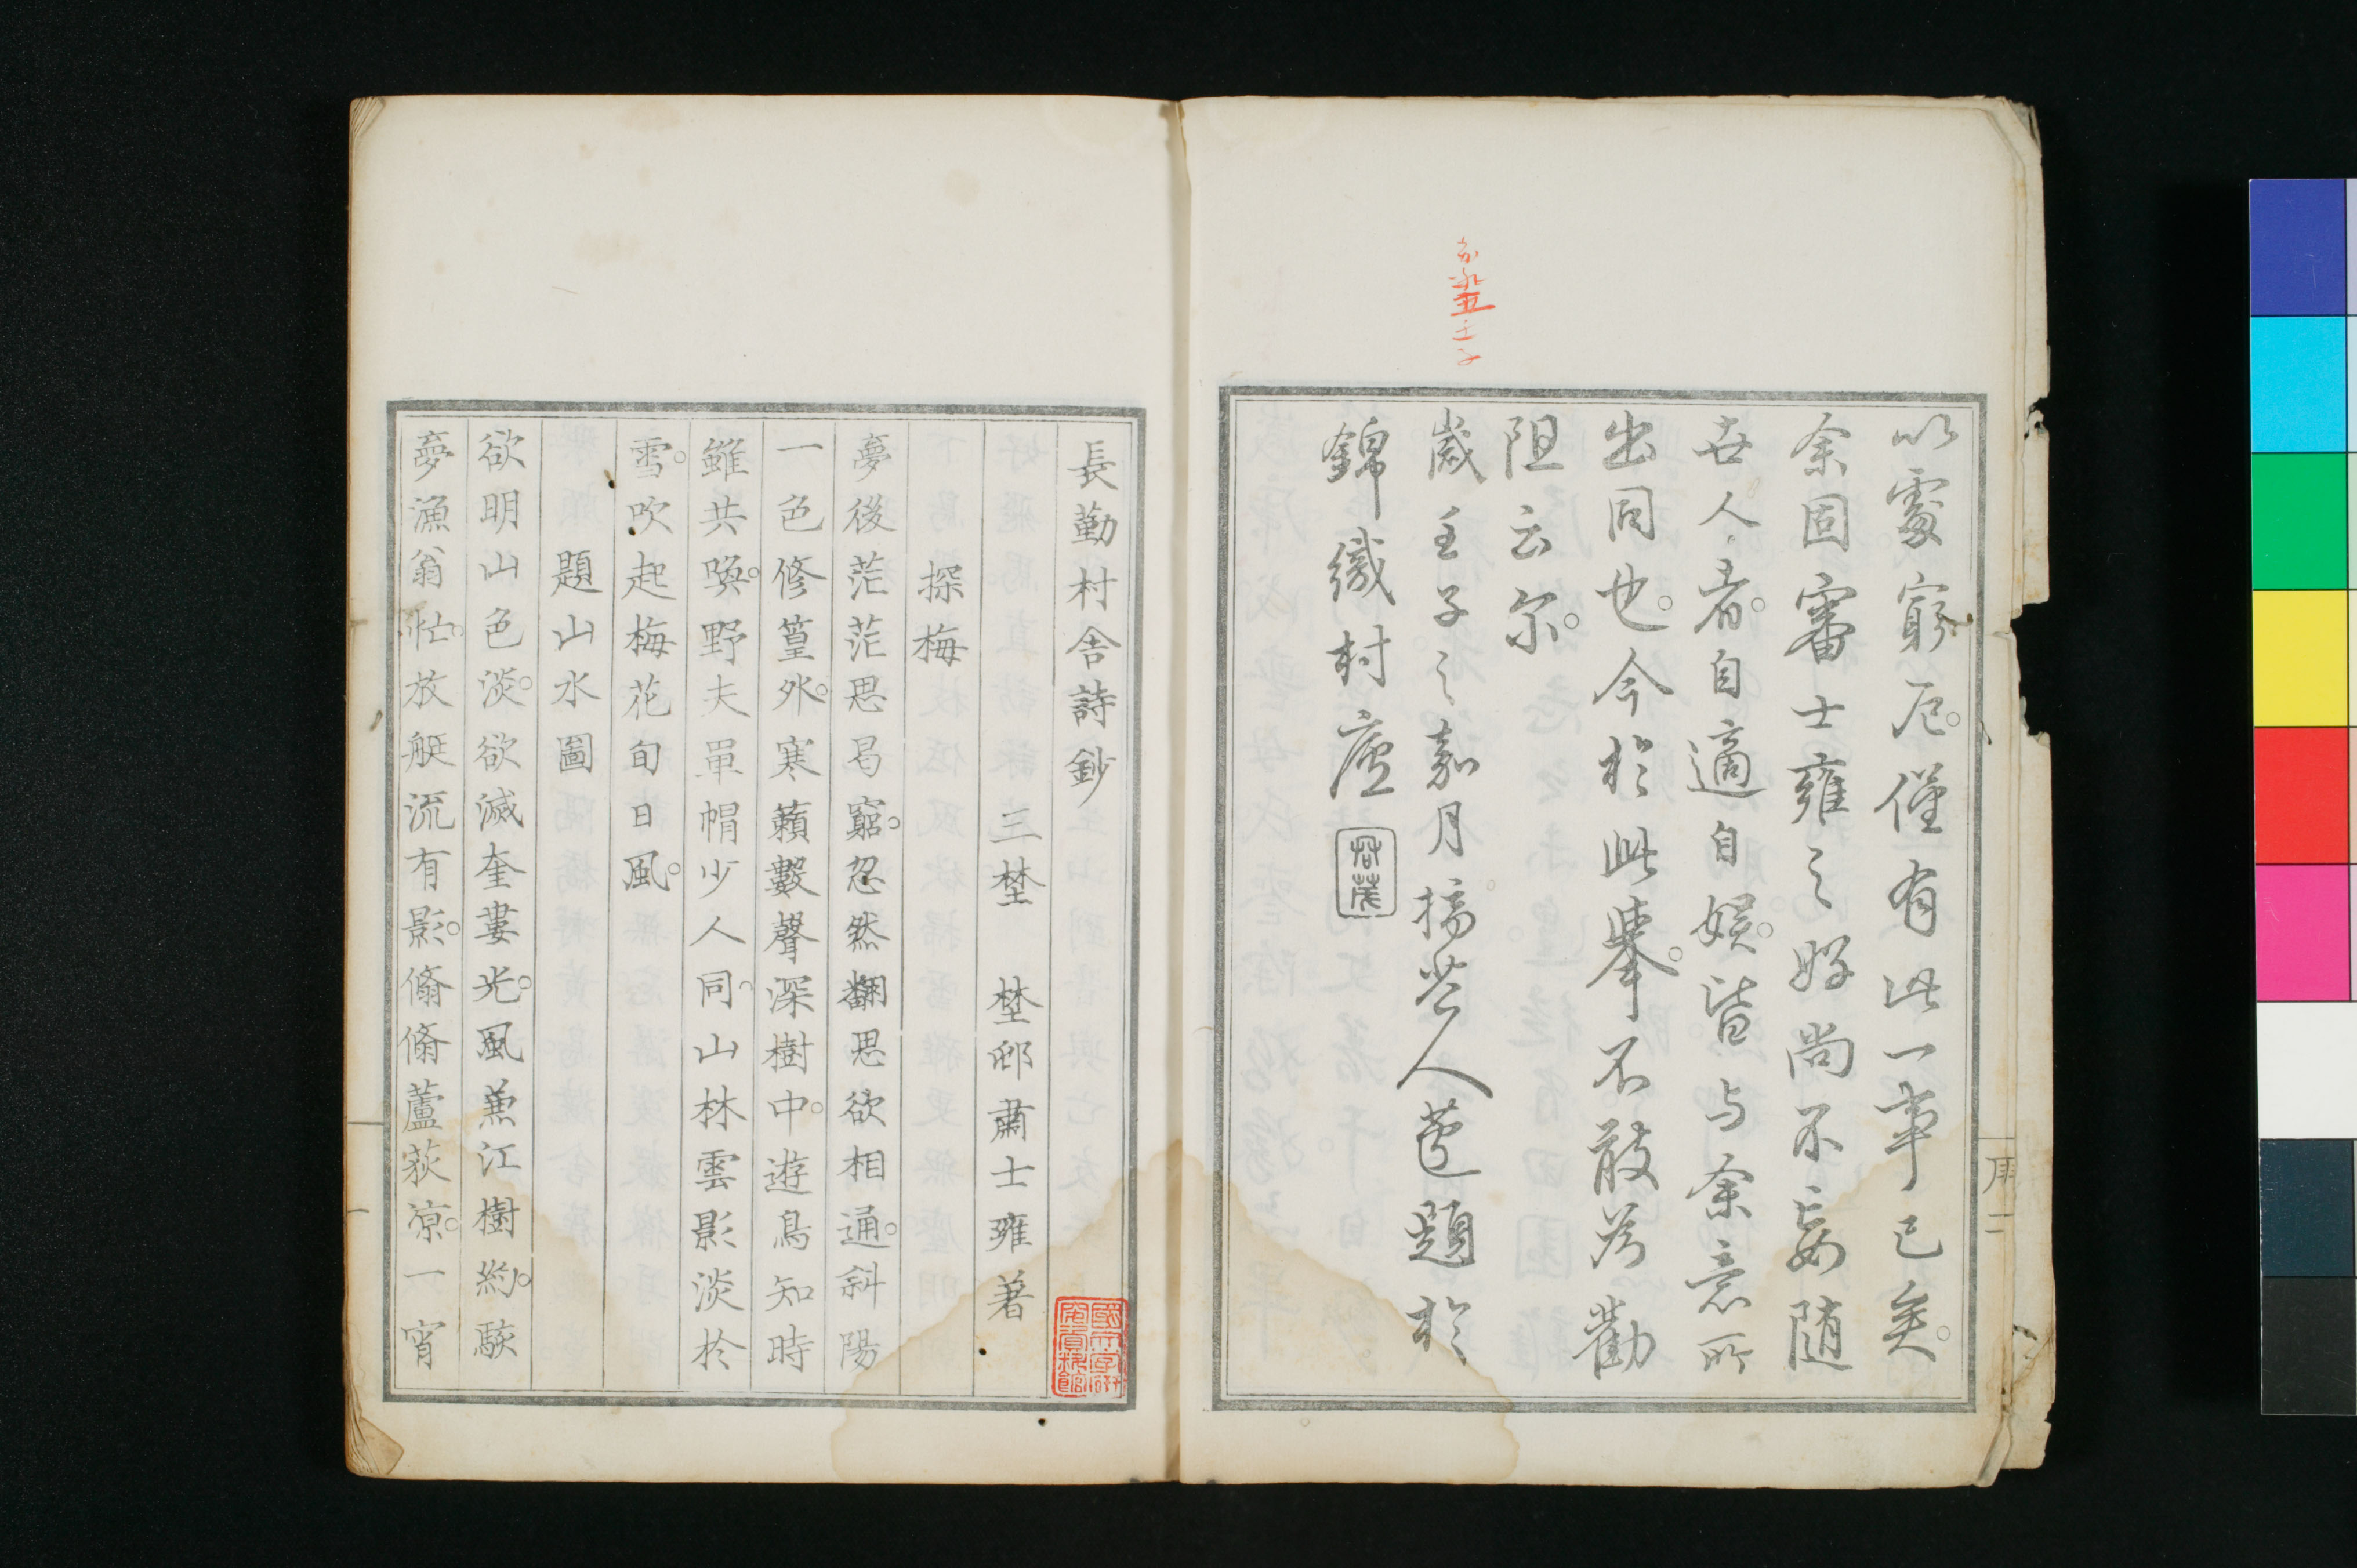 嘉永五壬子
以處窮戹。僅有此一事已矣。
余固審士雍之好尚不妄随
世人者。自適自娯。皆与余意所
出同也。今於此擧。不敢為勸
阻云尔。
歳壬子之嘉月橋芒人苞題於
錦織村廬
序二
長勤村舎詩鈔
三埜 埜邨肅士雍著
探梅
夢後茫茫思曷窮。忽然翻思欲相通。斜陽
一色修篁外。寒藾數聲深樹中。遊鳥知時
雖共喚。野夫單帽少人同。山林雲影淡於
雪。吹起梅花旬日風。
題山水圖
欲明山色淡。欲滅奎婁光。風蕉江樹約。駭
夢漁翁忙。放艇流有影。翛翛蘆荻凉。一宵